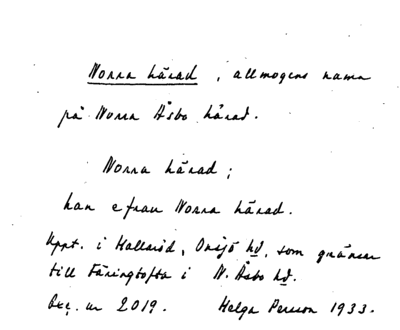 Norra härad, allmogens namn
på Norra Åsbo härad.
Norra härad;
han e frau Norra härad.
Uppt. i Hallaröd, Onsjö hd, som gränsar
till Färingtofta i N. Åsbo hd.
Acc. nr 2019. Helga Persson 1933.